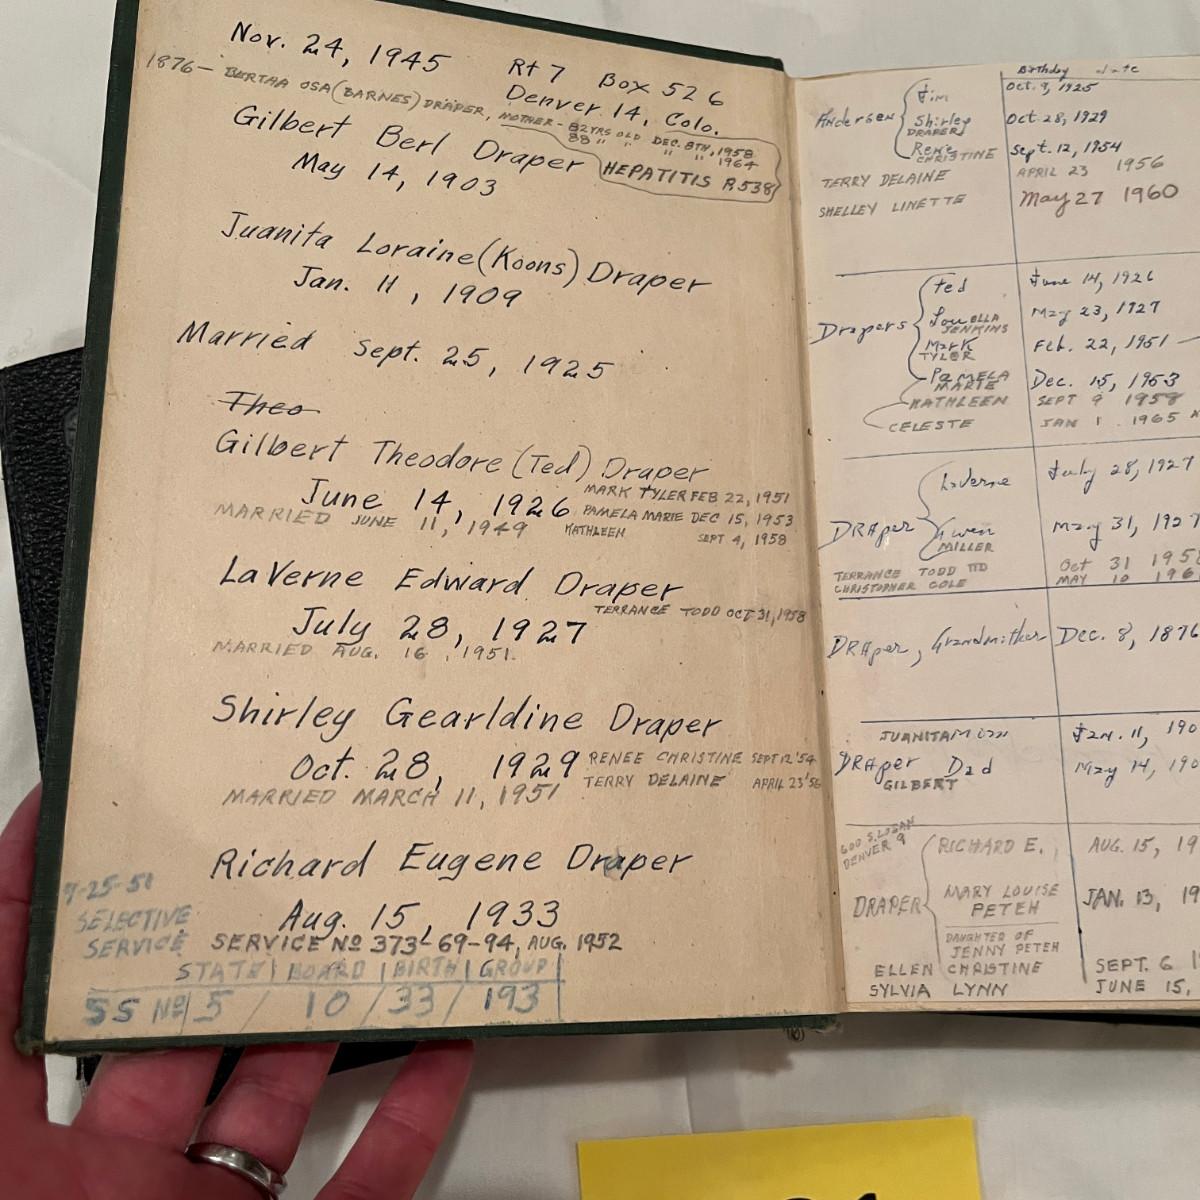 Nov. 24, 1945
Rt 7 Box 526
Denver 14, Colo.
1876 - BERTHA OSA (BARNES) DRAPER, MOTHER - 82 YRS OLD DEC. 8TH, 1958
88 " " " " 1964
HEPATITIS P. 538
Gilbert Berl Draper
May 14, 1903
Juanita Loraine (Koons) Draper
Jan. 11, 1909
Married Sept. 25, 1925
Theo
Gilbert Theodore (Ted) Draper
June 14, 1926 MARK TYLER FEB 22, 1951
MARRIED JUNE 11, 1949 PAMELA MARIE DEC 15, 1953
KATHLEEN SEPT 4, 1958
LaVerne Edward Draper
TERRANCE TODD OCT 31, 1958
July 28, 1927
MARRIED AUG. 16, 1951.
Shirley Gearldine Draper
Oct. 28, 1929 RENEE CHRISTINE SEPT 12 '54
TERRY DELAINE APRIL 23 '56
MARRIED MARCH 11, 1951
Richard Eugene Draper
Aug. 15, 1933
SELECTIVE
SERVICE SERVICE Nº 373-69-94, AUG. 1952
STATE | BOARD | BIRTH | GROUP
SS Nº 5 / 10 / 33 / 193
Birthday date
Andersen Jim Oct. 9, 1925
Shirley Oct. 28, 1929
DRAPER
Renee Sept. 12, 1954
CHRISTINE
TERRY DELAINE APRIL 23 1956
SHELLEY LINETTE May 27 1960
Drapers Ted June 14, 1926
LouELLA May 23, 1927
JENKINS
Mark Feb. 22, 1951
TYLER
PAMELA Dec. 15, 1953
MARIE
KATHLEEN SEPT 9 1958
CELESTE JAN 1 1965
DRAper LaVerne July 28, 1927
Gwen May 31, 1927
MILLER
TERRANCE TODD Oct 31 195
CHRISTOPHER COLE MAY 10 196
DRAper, Grandmither Dec. 8, 1876
JUANITA Mom Jan. 11, 190
DRAper Dad May 14, 190
GILBERT
600 S. LOGAN
DENVER 9
DRAPER RICHARD E. AUG. 15, 19
MARY LOUISE JAN. 13, 19
PETEH
DAUGHTER OF
JENNY PETEH
ELLEN CHRISTINE SEPT. 6 1
SYLVIA LYNN JUNE 15,